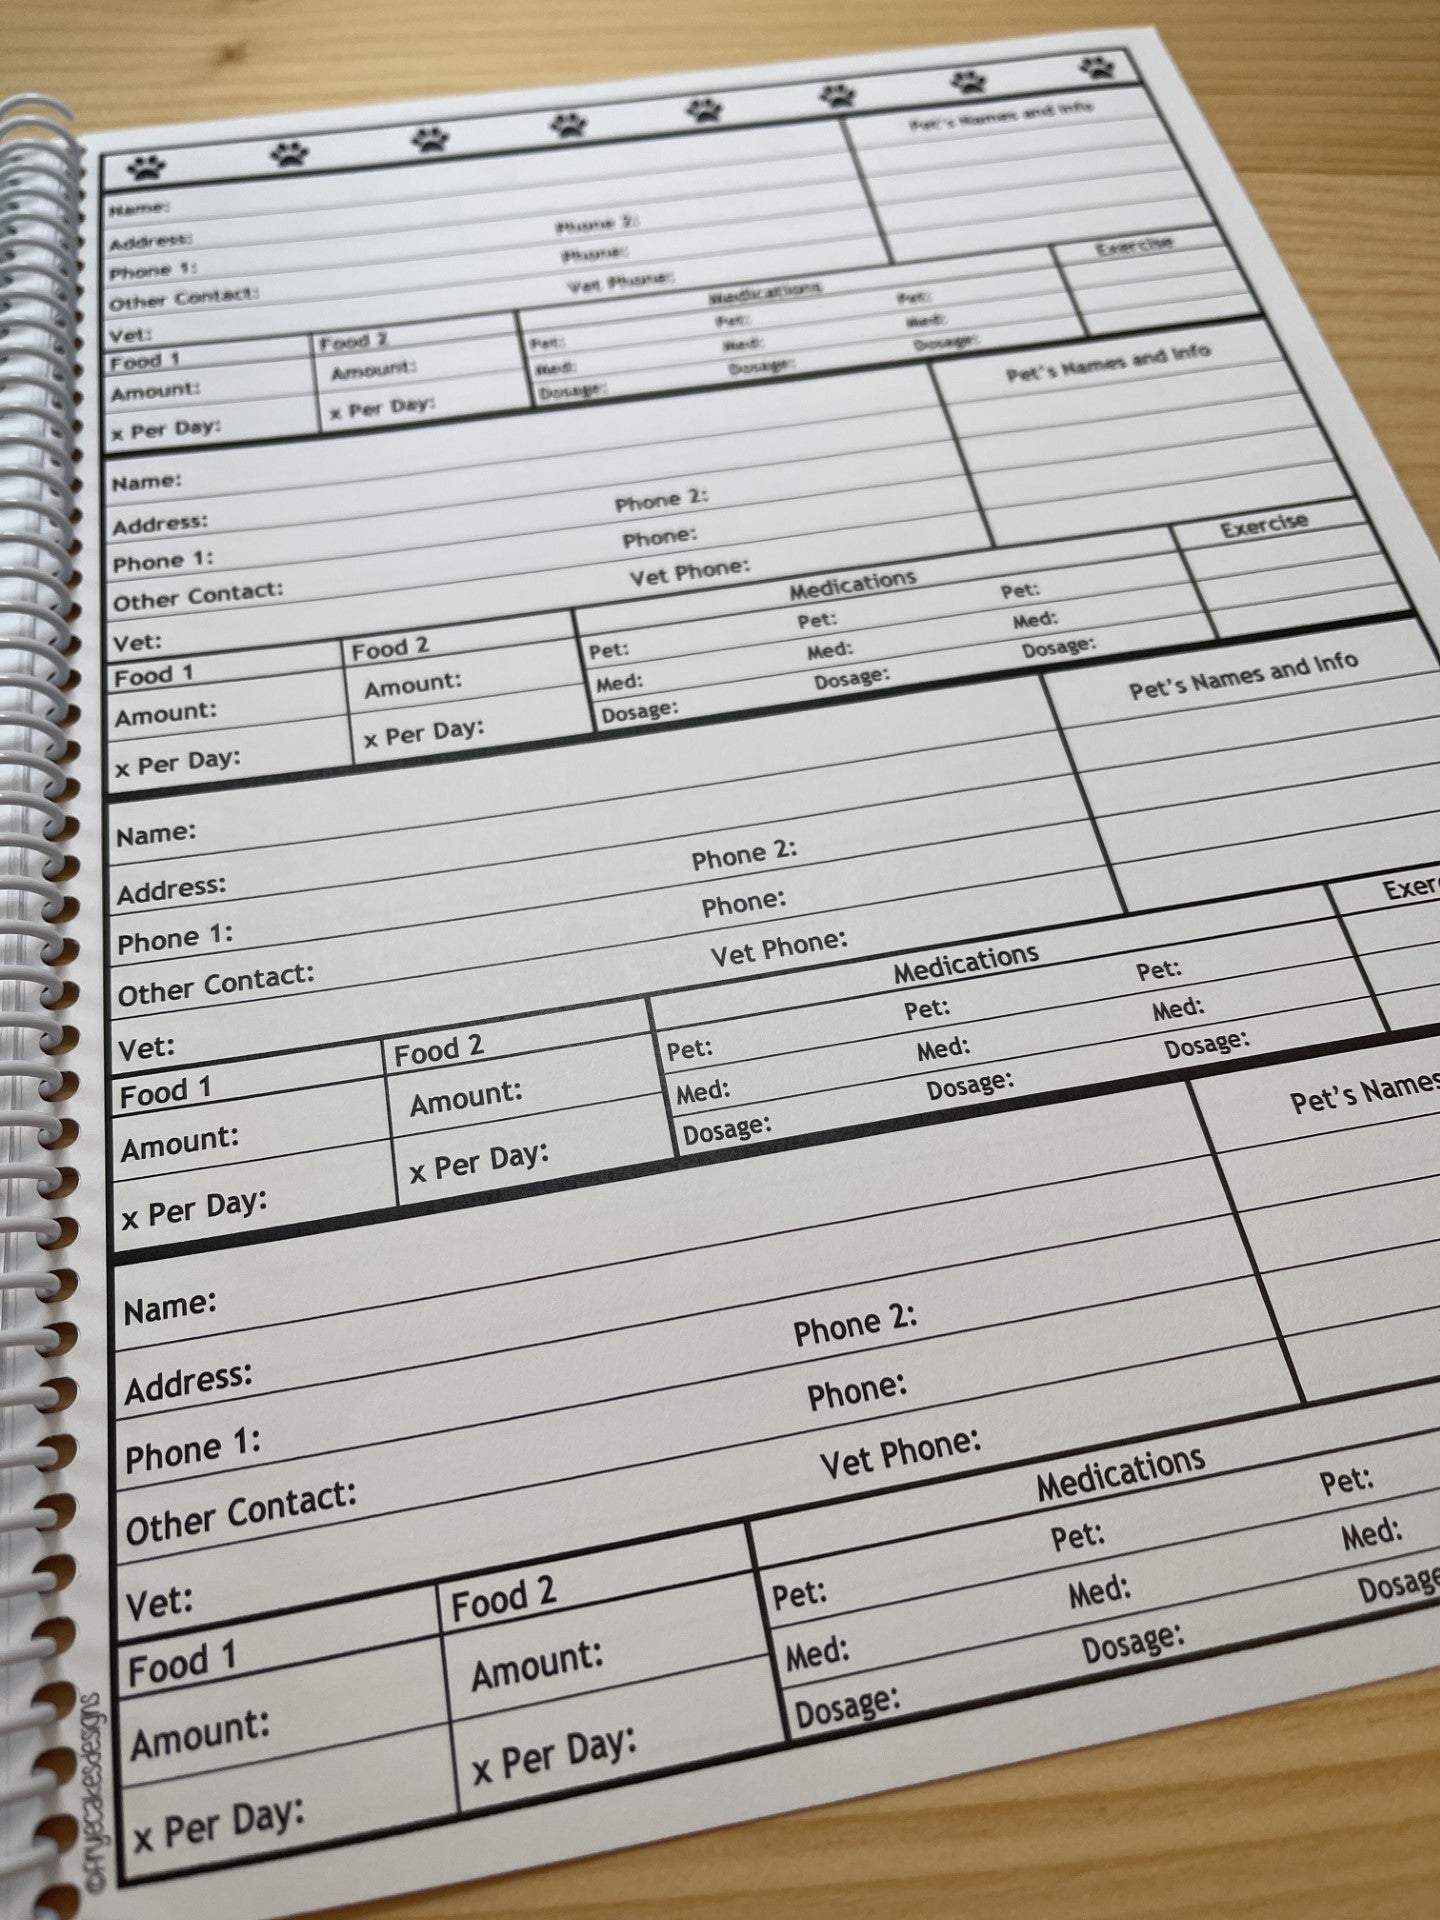 Pet's Names and Info
Name:
Address: Phone 2:
Phone 1: Phone:
Other Contact: Vet Phone:
Vet: Medications Exercise
Food 1 Food 2 Pet: Pet: Pet:
Amount: Amount: Med: Med: Med:
x Per Day: x Per Day: Dosage: Dosage: Dosage:
Pet's Names and Info
Name:
Address: Phone 2:
Phone 1: Phone:
Other Contact: Vet Phone:
Vet: Medications Exercise
Food 1 Food 2 Pet: Pet: Pet:
Amount: Amount: Med: Med: Med:
x Per Day: x Per Day: Dosage: Dosage: Dosage:
Pet's Names and Info
Name:
Address: Phone 2:
Phone 1: Phone:
Other Contact: Vet Phone:
Vet: Medications Exer
Food 1 Food 2 Pet: Pet: Pet:
Amount: Amount: Med: Med: Med:
x Per Day: x Per Day: Dosage: Dosage: Dosage:
Pet's Names
Name:
Address: Phone 2:
Phone 1: Phone:
Other Contact: Vet Phone:
Vet: Medications
Food 1 Food 2 Pet: Pet: Pet:
Amount: Amount: Med: Med: Med:
x Per Day: x Per Day: Dosage: Dosage: Dosage
©fryecakesdesigns